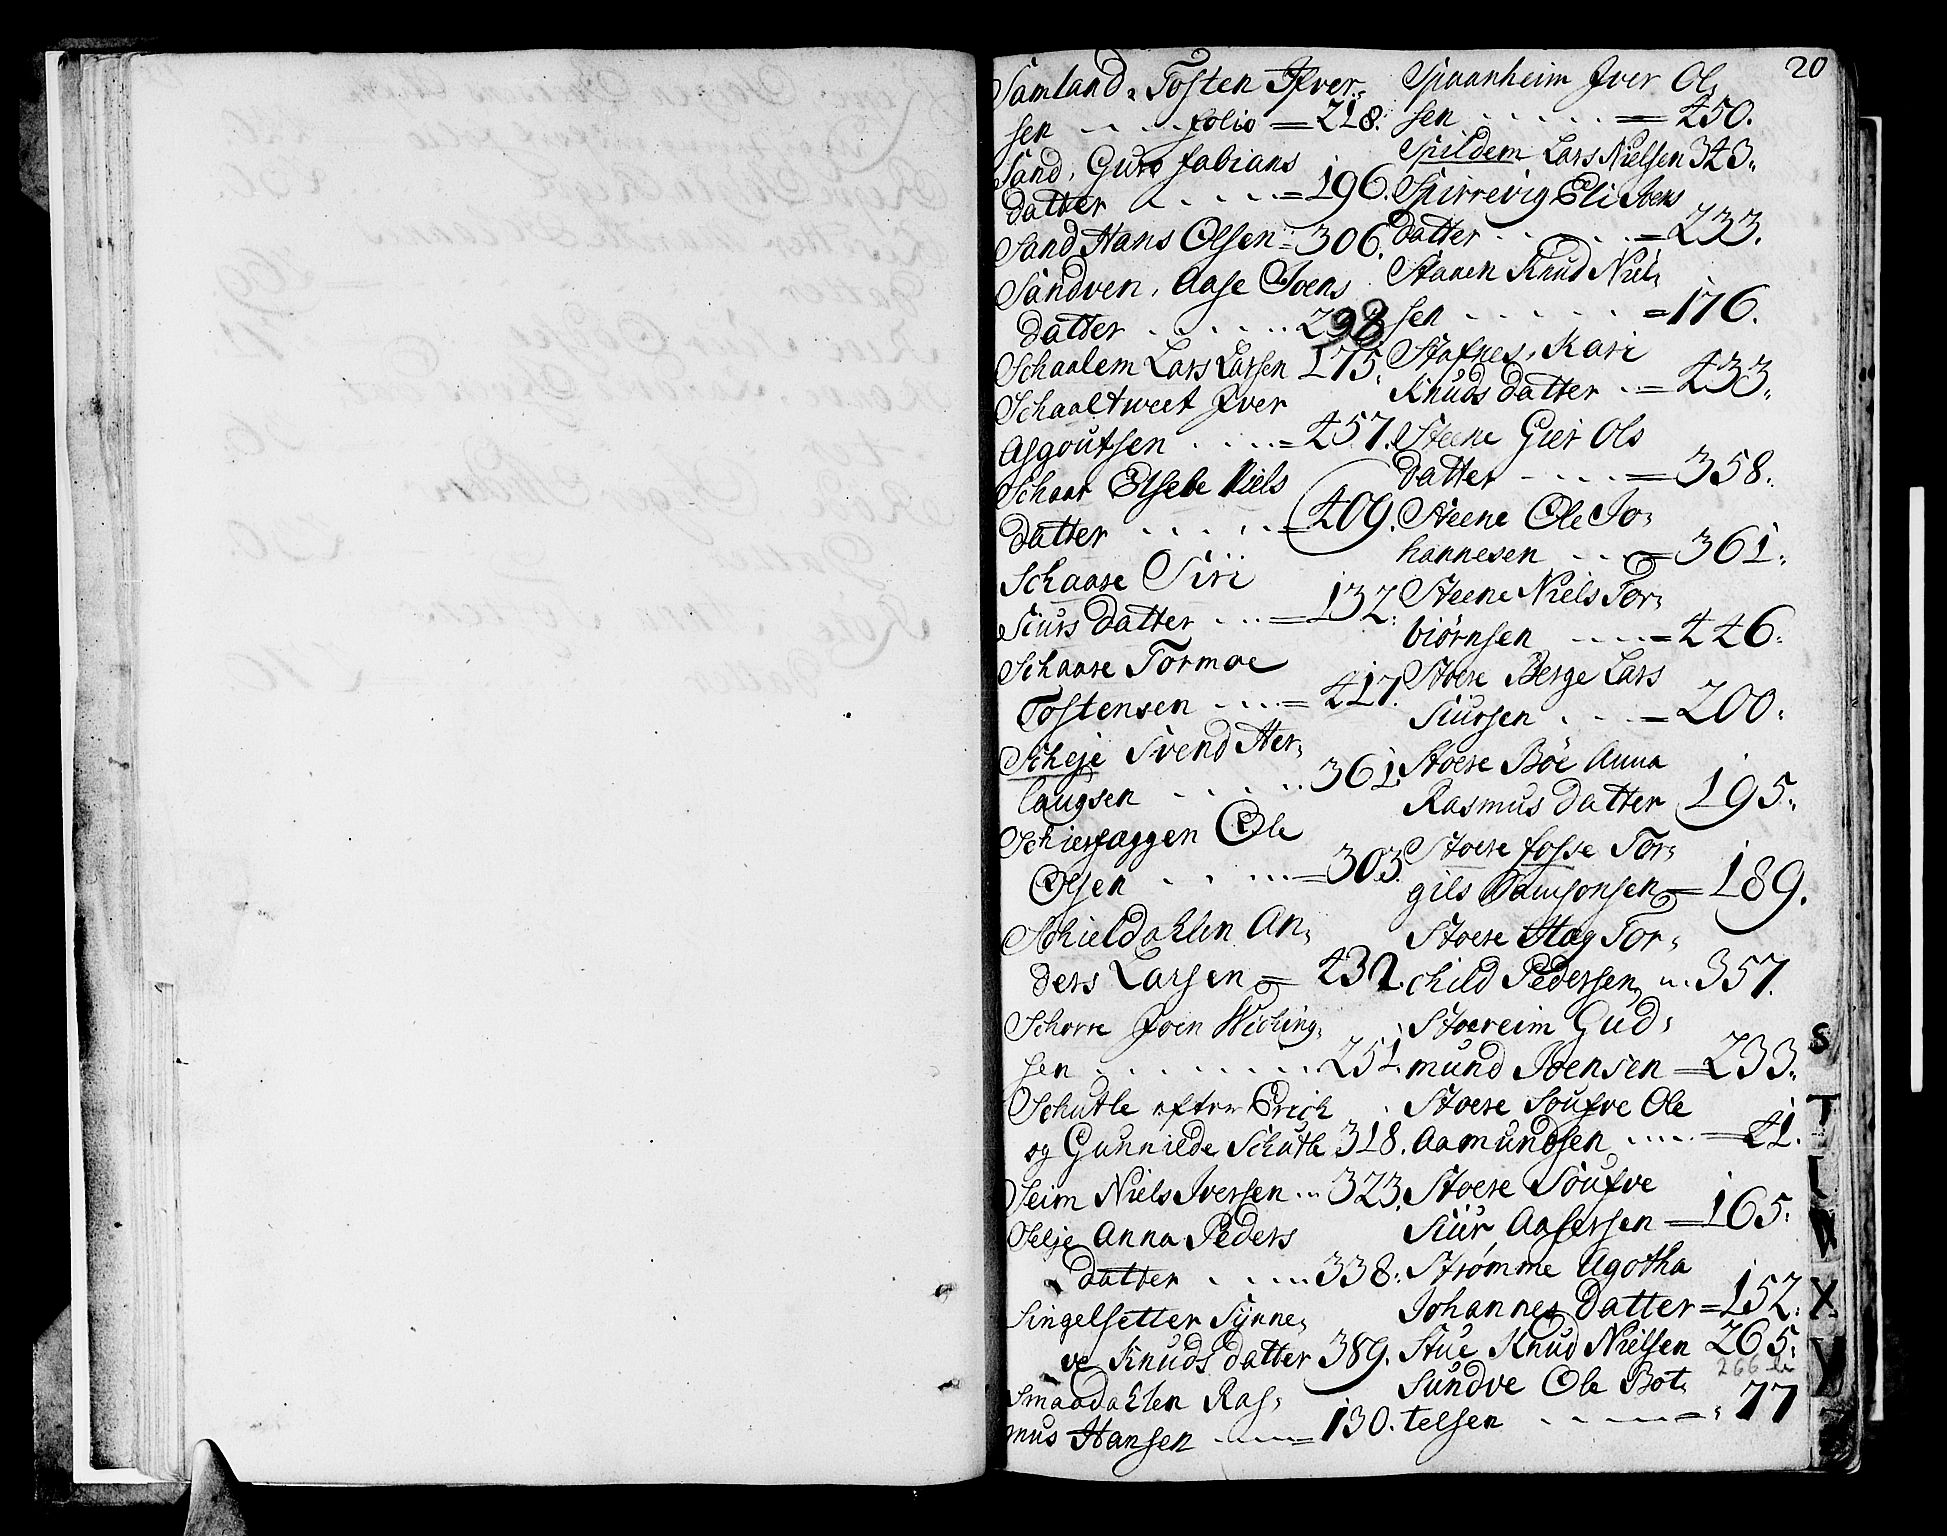 20
Samland, Tosten Ifver,
sen . . . . folio = 218.
Sand, Guro fabians
datter . . . . = 196.
Sand Hans Olsen = 306.
Sandven, Aase Joens
datter . . . . . . 298
Schaalem Lars Larsen 175.
Schaaltweet Jver
Asgoutsen . . . . = 457.
Schaar Elsebe Niels
datter . . . . . = 409.
Schaare Siri
Siurs datter . . . = 132.
Schaare Tormoe
Tostensen . . . . = 417.
Scheje Svend Her,
laugsen . . . . . . 361.
Ole
Olsen . . . . . = 303.
Schieldahlen An,
ders Larsen = 432.
Schorre Joen Wiching,
sen . . . . . . . . . 251.
Schutle efter Erich
og Gunnilde Schutle 318.
Seim Niels Iversen ... 323.
Selje Anna Peders
datter . . . . . . 338.
Singelsetter Synne,
ve Knuds datter 389.
Smaadahlen Ras,
mus Hansen = 130.
Spaanheim Jver Ols
sen . . . . . = 450.
Spildem Lars Nielsen 343.
Spirrevig Eli Joens
datter . . . . . = 233.
Staaen Knud Niel,
sen . . . . . . = 176.
Stafnes, Kari
Knuds datter . . = 433.
Steene Gier Ols
datter - . . . = 358.
Steene Ole Jo,
hannesen . . . = 361.
Steene Niels Tor,
biörnsen . . . . = 446.
Stoere Berge Lars
Siursen . . . . = 200.
Stoere Böe Anna
Rasmus datter 195.
Stoere fosse Tor,
gils Samsonsen = 189.
Stoere Hag Tor,
child Pedersen, ... 357.
Stoereim Gud,
mund Joensen = 233.
Stoere Soufve Ole
Aamundsen . . . . = 41.
Stoere Soufve
Siur Aasersen = 165.
Strømme Agotha
Johannes datter = 152.
Stue Knud Nielsen 265.
266
Sundve Ole Bot,
telsen . . . . . = 77
S
T
W
X
Y
Z